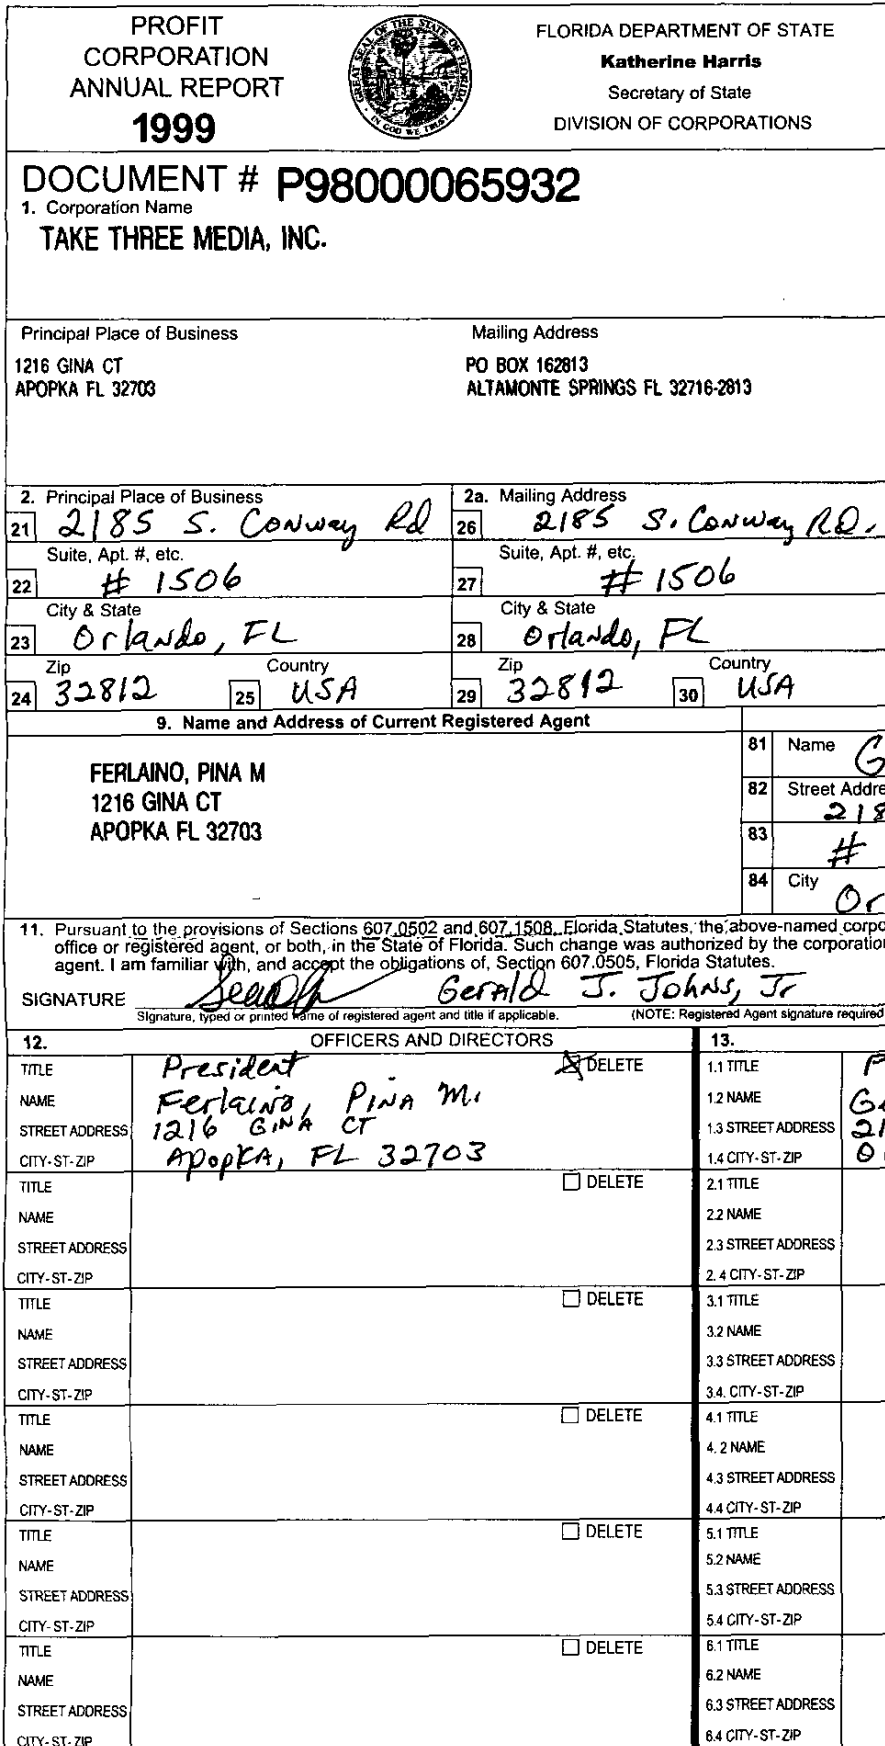 PROFIT
CORPORATION
ANNUAL REPORT
1999
GREAT SEAL OF THE STATE OF FLORIDA
IN GOD WE TRUST
FLORIDA DEPARTMENT OF STATE
Katherine Harris
Secretary of State
DIVISION OF CORPORATIONS
DOCUMENT # P98000065932
1. Corporation Name
TAKE THREE MEDIA, INC.
Principal Place of Business
1216 GINA CT
APOPKA FL 32703
Mailing Address
PO BOX 162813
ALTAMONTE SPRINGS FL 32716-2813
2. Principal Place of Business
21 2185 S. Conway Rd
Suite, Apt. #, etc.
22 # 1506
City & State
23 Orlando, FL
Zip Country
24 32812 25 USA
2a. Mailing Address
26 2185 S. Conway RD.
Suite, Apt. #, etc.
27 # 1506
City & State
28 Orlando, FL
Zip Country
29 32812 30 USA
9. Name and Address of Current Registered Agent
FERLAINO, PINA M
1216 GINA CT
APOPKA FL 32703
81 Name G
82 Street Addre
218
83 #
84 City
Or
11. Pursuant to the provisions of Sections 607.0502 and 607.1508, Florida Statutes, the above-named corpo
office or registered agent, or both, in the State of Florida. Such change was authorized by the corporation
agent. I am familiar with, and accept the obligations of, Section 607.0505, Florida Statutes.
SIGNATURE Gerald J. Johns, Jr
Signature, typed or printed name of registered agent and title if applicable. (NOTE: Registered Agent signature required
12. OFFICERS AND DIRECTORS
TITLE President DELETE
NAME Ferlaino, PINA M.
STREET ADDRESS 1216 GINA CT
CITY-ST-ZIP APOPKA, FL 32703
TITLE DELETE
NAME
STREET ADDRESS
CITY-ST-ZIP
TITLE DELETE
NAME
STREET ADDRESS
CITY-ST-ZIP
TITLE DELETE
NAME
STREET ADDRESS
CITY-ST-ZIP
TITLE DELETE
NAME
STREET ADDRESS
CITY-ST-ZIP
TITLE DELETE
NAME
STREET ADDRESS
CITY-ST-ZIP
13.
1.1 TITLE P
1.2 NAME Ge
1.3 STREET ADDRESS 21
1.4 CITY-ST-ZIP O
2.1 TITLE
2.2 NAME
2.3 STREET ADDRESS
2.4 CITY-ST-ZIP
3.1 TITLE
3.2 NAME
3.3 STREET ADDRESS
3.4. CITY-ST-ZIP
4.1 TITLE
4.2 NAME
4.3 STREET ADDRESS
4.4 CITY-ST-ZIP
5.1 TITLE
5.2 NAME
5.3 STREET ADDRESS
5.4 CITY-ST-ZIP
6.1 TITLE
6.2 NAME
6.3 STREET ADDRESS
6.4 CITY-ST-ZIP